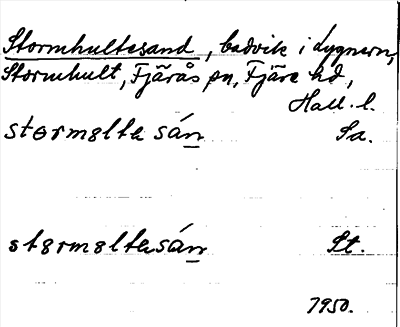 Stormhultesand, badvik i Lygnern,
Stormhult, Fjärås sn, Fjäre hd,
Hall. l.
stormølte sán Sa.
størmøltesán St.
1950.